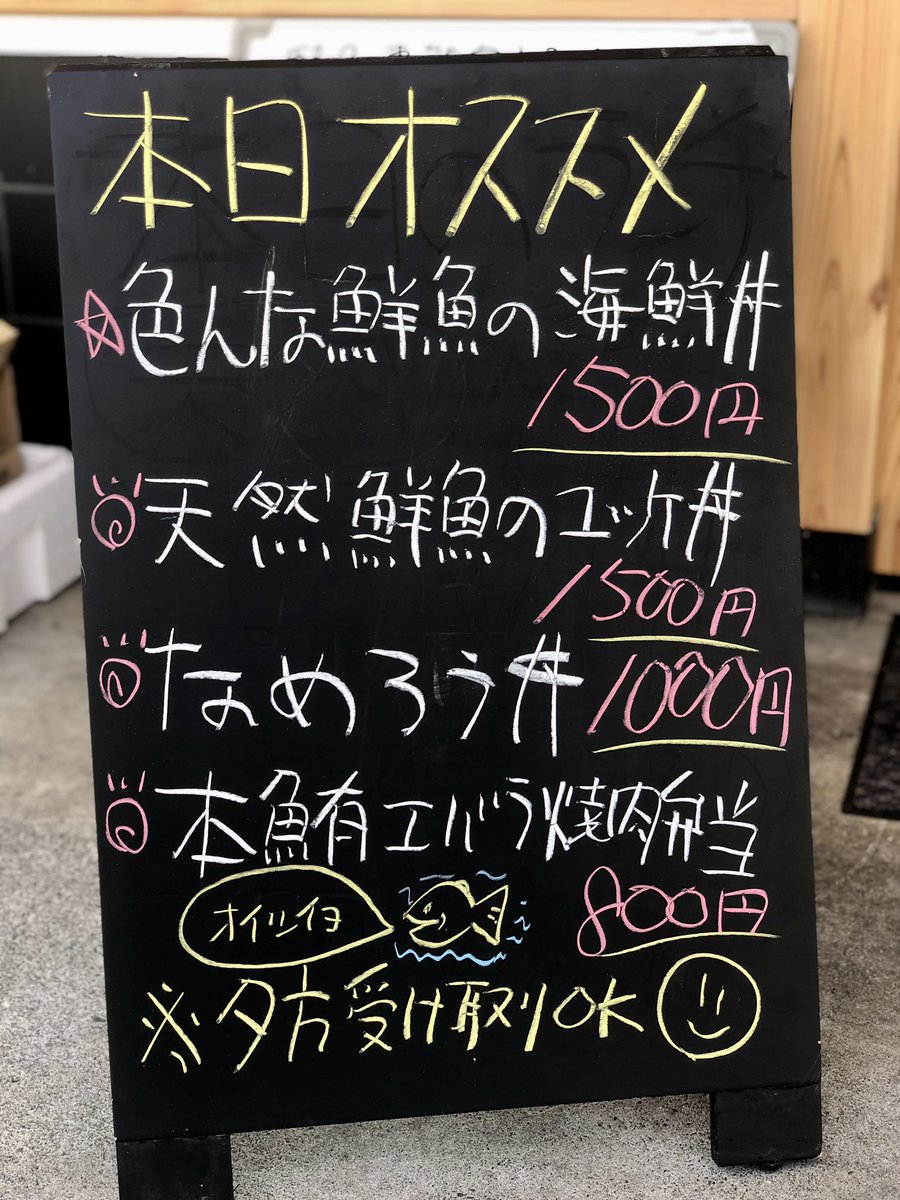 本日オススメ
☆色んな鮮魚の海鮮丼
1500円
天然鮮魚のユッケ丼
1500円
なめろう丼 1000円
本鮪エバラ焼肉弁当
オイシイヨ
800円
※夕方受け取りOK